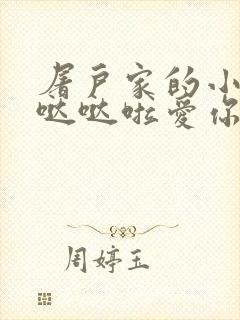 屠户家的小
哒哒啦爱你
周婷玉